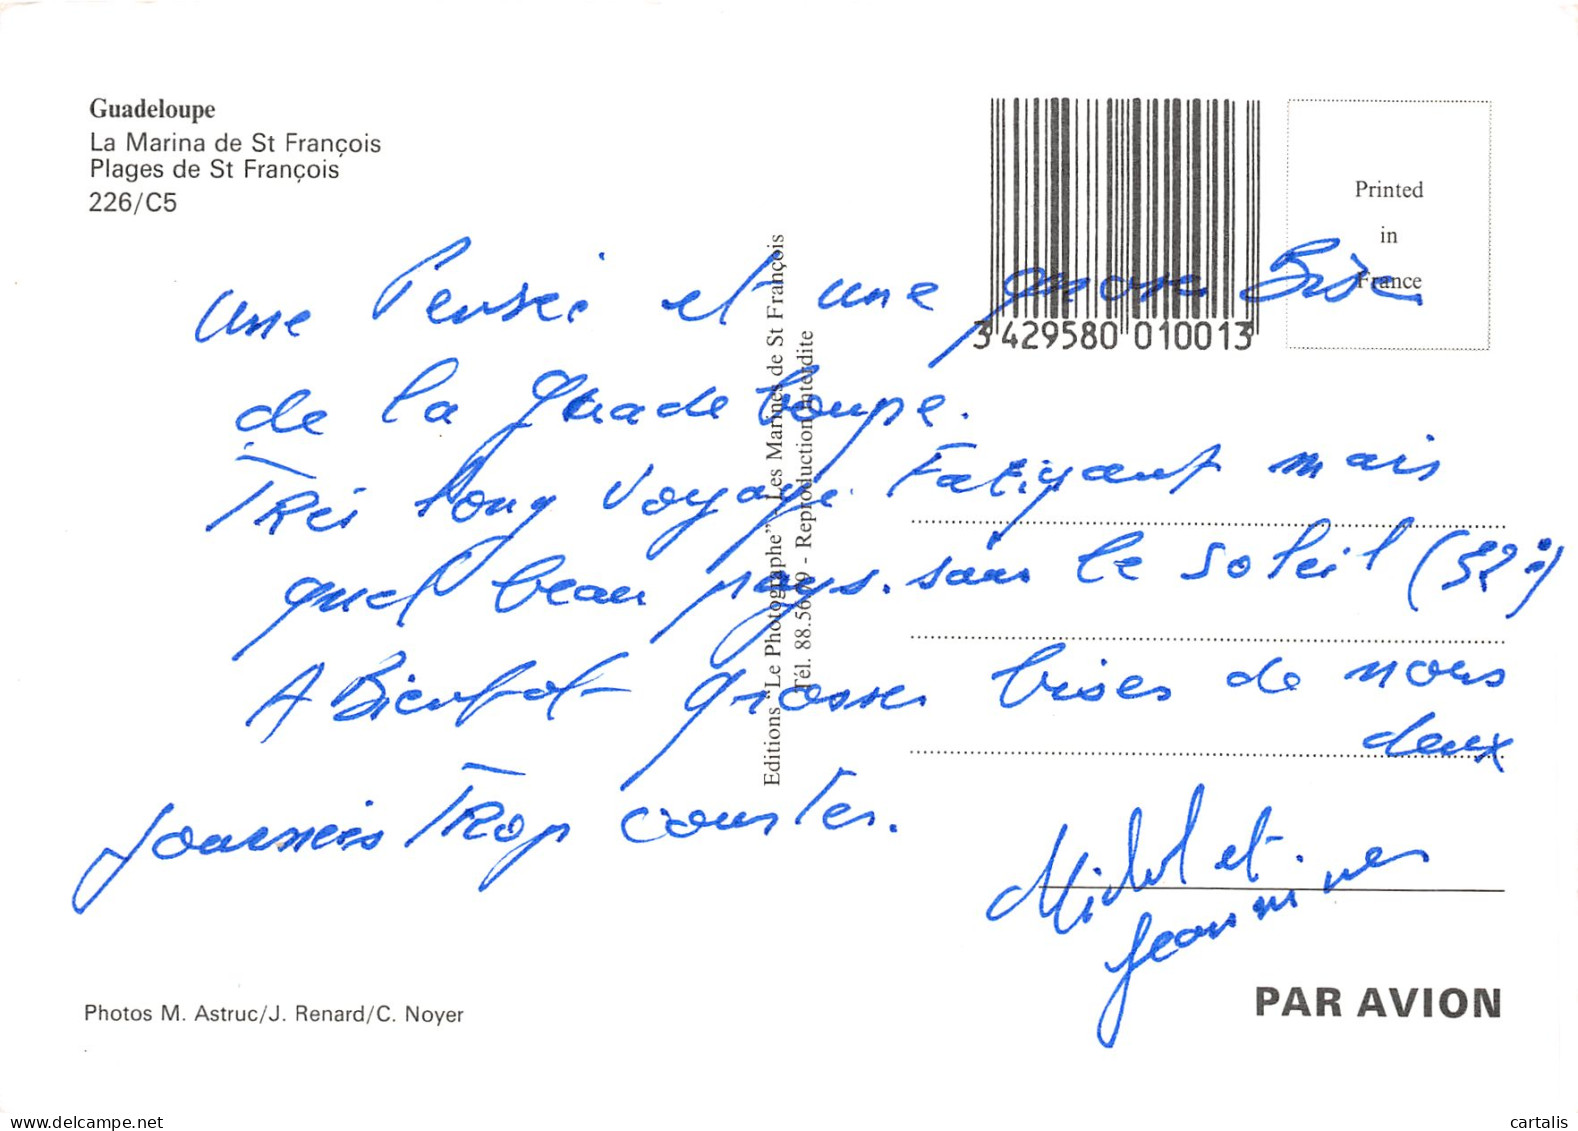 Guadeloupe
La Marina de St François
Plages de St François
226/C5
Printed
in
France
3 429580 010013
une Pensée et une grosse Bise
de la Guadeloupe.
Très long voyage. Fatigant mais
quel beau pays. sous le soleil (32°)
A Bientot grosses bises de nous
deux
journées Trop courtes.
Michel et
Jeannine
Editions "Le Photographe" - Les Marines de St François
Tél. 88.56.09 - Reproduction interdite
Photos M. Astruc/J. Renard/C. Noyer
PAR AVION
www.delcampe.net
cartalis